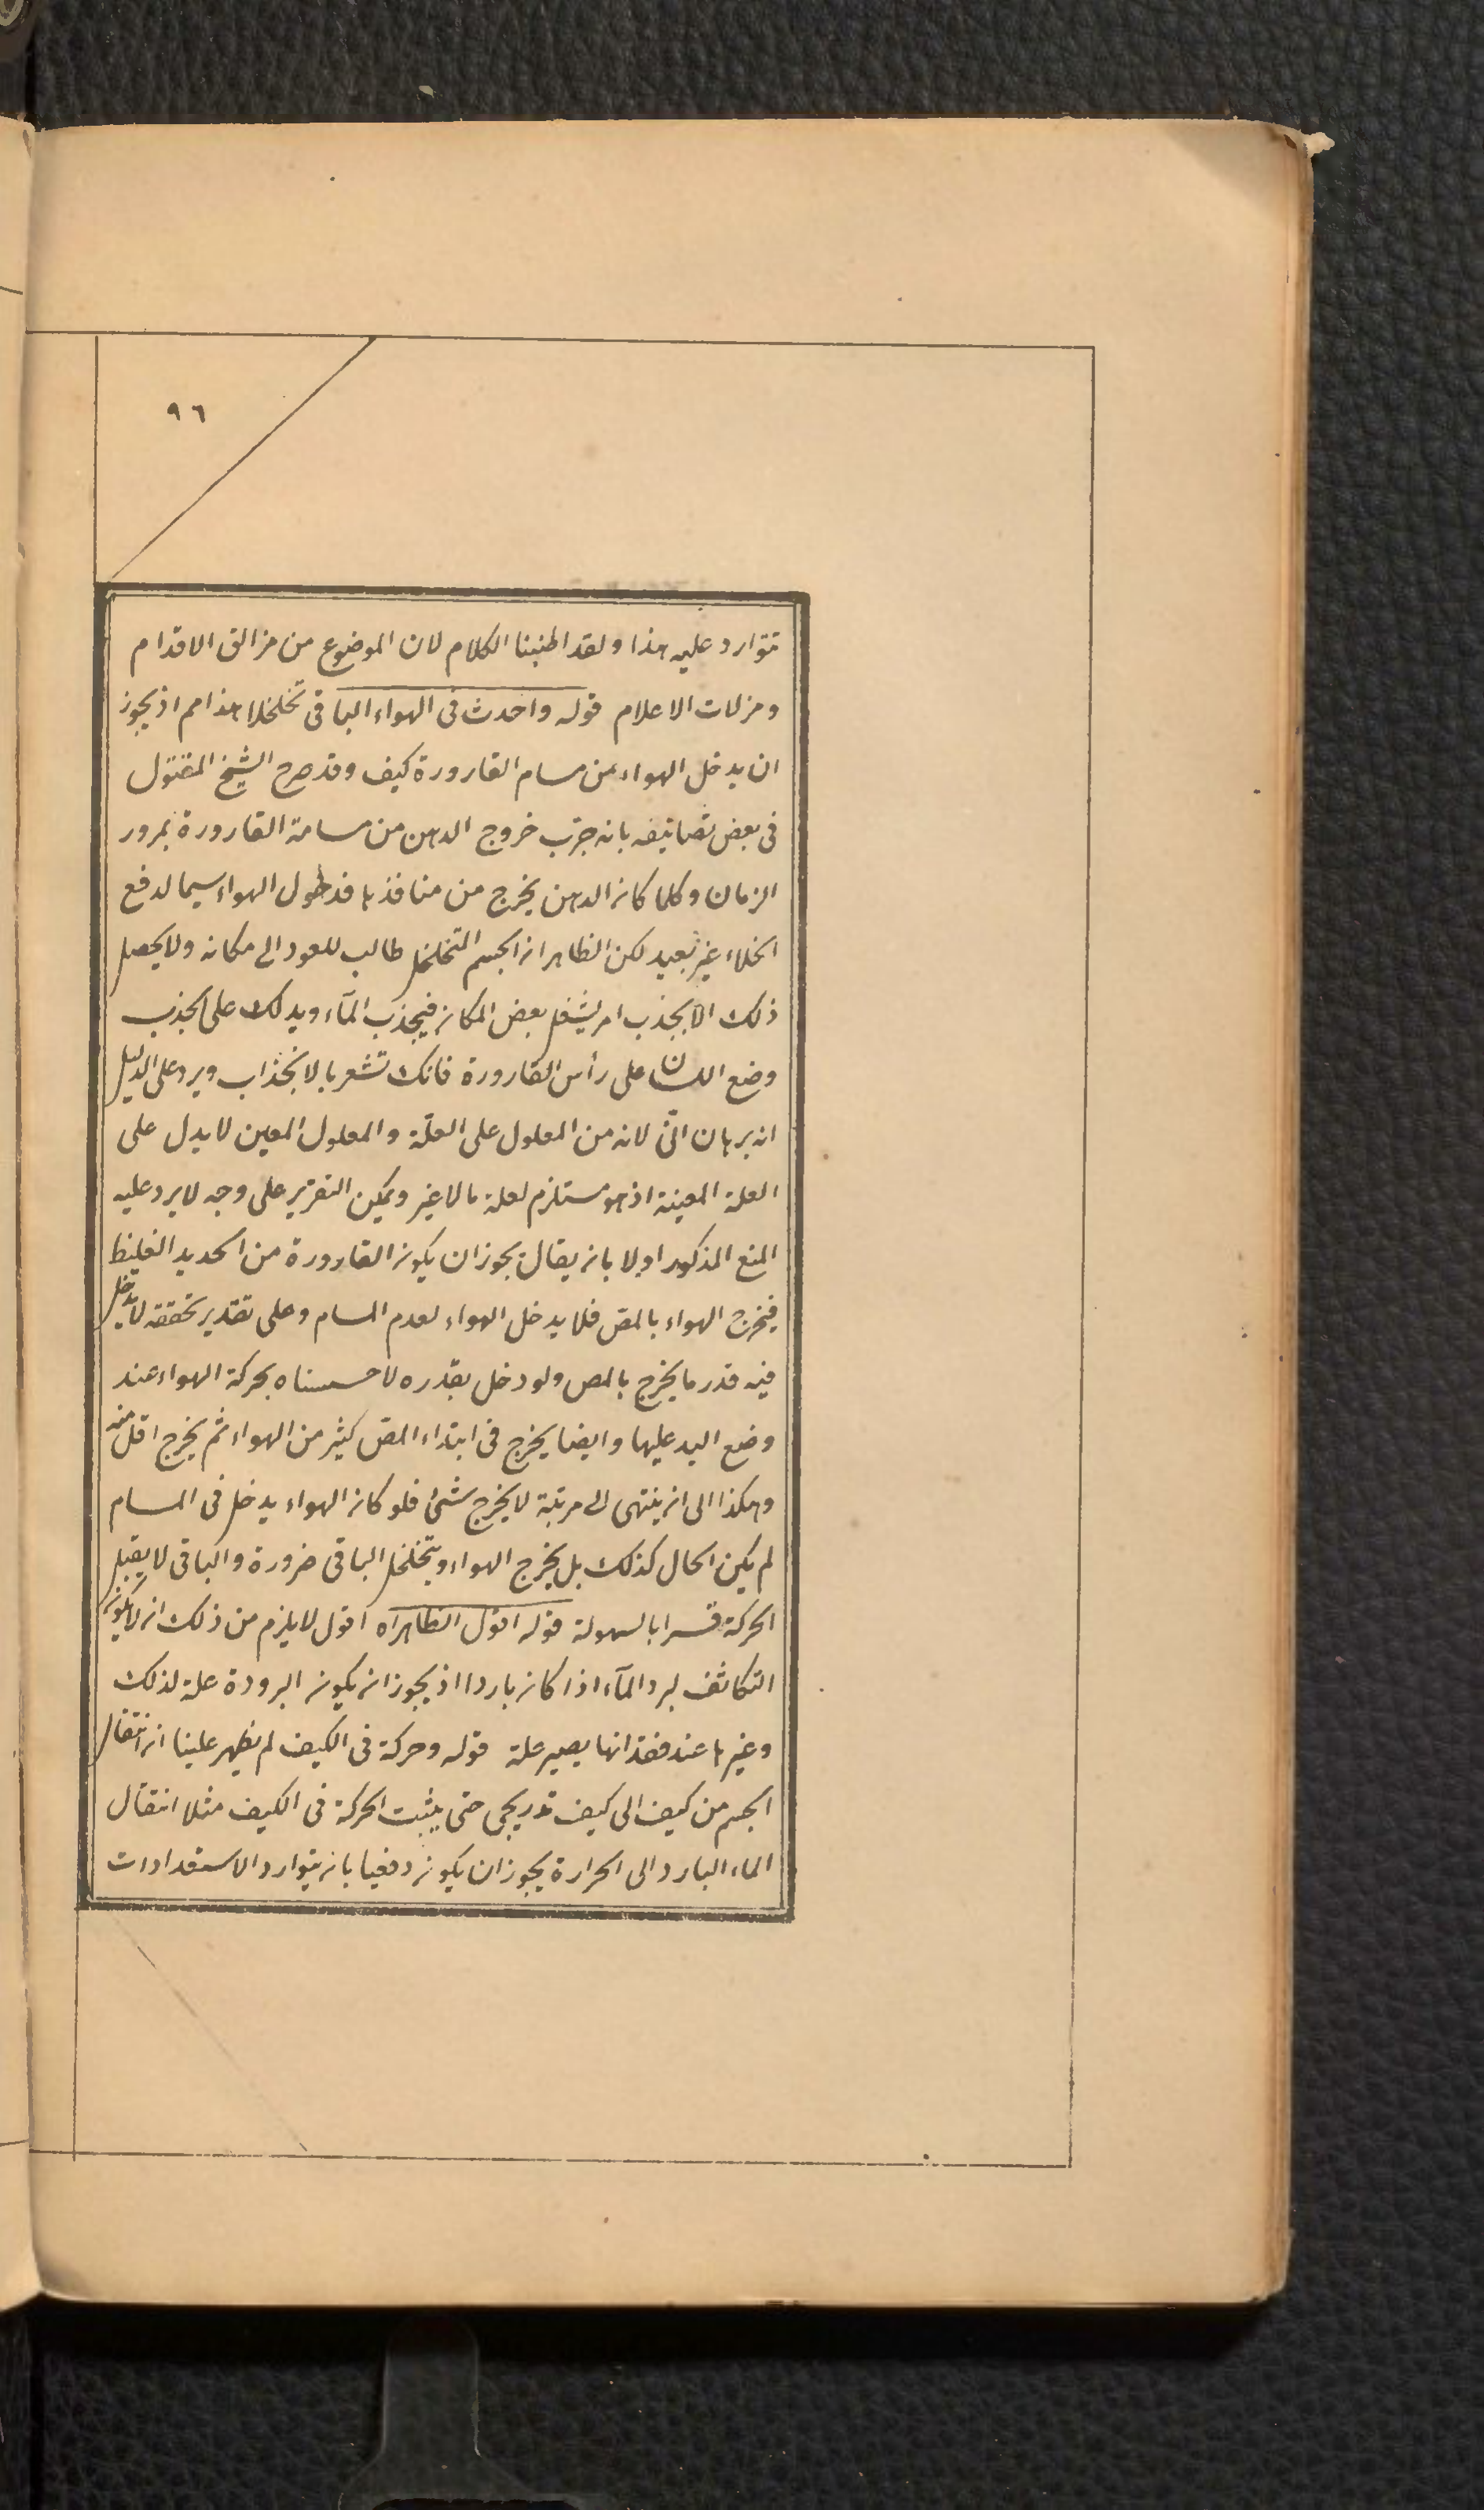 ٩٦
تتوارد عليه هذا ولقد اطنبنا الكلام لان الموضوع من مزالق الاقدام
ومزلات الاعلام قوله واحدث فى الهواء الباقى تخلخلا هذا مم اذ يجوز
ان يدخل الهواء من مسام القارورة كيف وقد صرح الشيخ المقتول
فى بعض تصانيفه بانه جرّب خروج الدهن من مسامة القارورة بمرور
الزمان وكلما كان الدهن يخرج من منافذها فدخول الهواء سيما لدفع
الخلاء غير بعيد لكن الظاهر ان الجسم المتخلخل طالب للعود الى مكانه ولا يحصل
ذلك الا بجذب امر يشغل بعض المكان فيجذب المآء ويدلك على الجذب
وضع اللسان على رأس القارورة فانك تشعر بالانجذاب ويرد على الدليل
انه برهان انّى لانه من المعلول على العلّة والمعلول المعين لا يدل على
العلة المعينة اذ هو مستلزم لعلة ما لا غير ويمكن التقرير على وجه لا يرد عليه
المنع المذكور اولا بان يقال يجوز ان يكون القارورة من الحديد الغليظ
فيخرج الهواء بالمص فلا يدخل الهواء لعدم المسام وعلى تقدير تحققه لا يدخل
فيه قدر ما يخرج بالمص ولو دخل بقدره لاحسسناه بحركة الهواء عند
وضع اليد عليها وايضا يخرج فى ابتداء المص كثير من الهواء ثم يخرج اقل منه
وهكذا الى ان ينتهى الى مرتبة لا يخرج شئ فلو كان الهواء يدخل فى المسام
لم يكن الحال كذلك بل يخرج الهواء ويتخلخل الباقى ضرورة والباقى لا يقبل
الحركة قسرا بالسهولة قوله اقول الظاهر اه اقول لا يلزم من ذلك ان لا يكون
التكاثف لبرد المآء اذا كان باردا اذ يجوز ان يكون البرودة علة لذلك
وغيرها عند فقدانها يصير علة قوله وحركة فى الكيف لم يظهر علينا ان انتقال
الجسم من كيف الى كيف تدريجى حتى يثبت الحركة فى الكيف مثلا انتقال
الماء البارد الى الحرارة يجوز ان يكون دفعيا بان يتوارد الاستعدادات